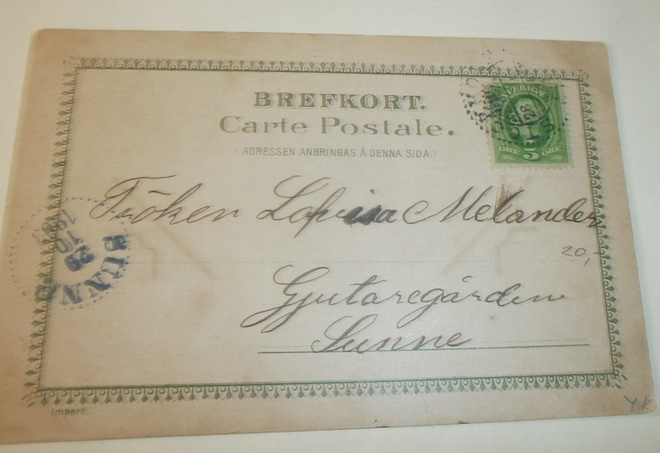 BREFKORT.
Carte Postale.
(ADRESSEN ANBRINGAS Å DENNA SIDA.)
SVERIGE
5
ÖRE ÖRE
Fröken Lovisa Melander
20,-
Gjutaregården
Sunne
SUNNE
29
10
Import.